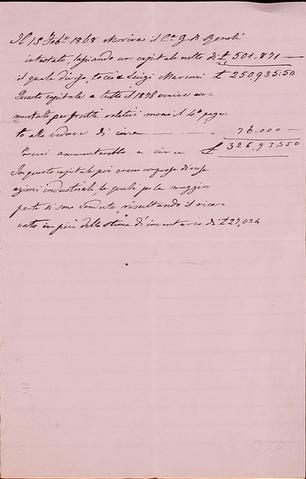 Il 15 Feb.º 1868 Moriva il Cª G. B.
intestato, lasciando un capitale netto di £ 501,871 —
il quale diviso, tocca a Luigi Marconi £ 250,935.50
Questo capitale a tutto il 1878 veniva au-
mentato per frutti relativi meno il 4º paga-
to alla vedova di circa — 76.000 —
Totale ammonterebbe a circa £ 326,935.50
In questo capitale poi erano comprese diverse
azioni industriali le quali per la maggior
parte si sono vendute, risultando il rica-
vato in più della stima d'inventario di £ 27,034